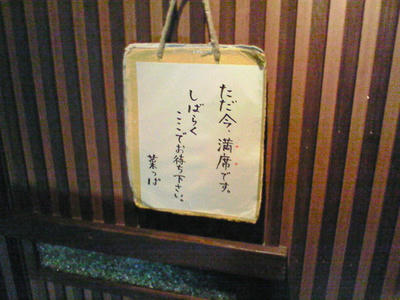 ただ今、満席です。
しばらく
ここでお待ち下さい。
菜っぱ